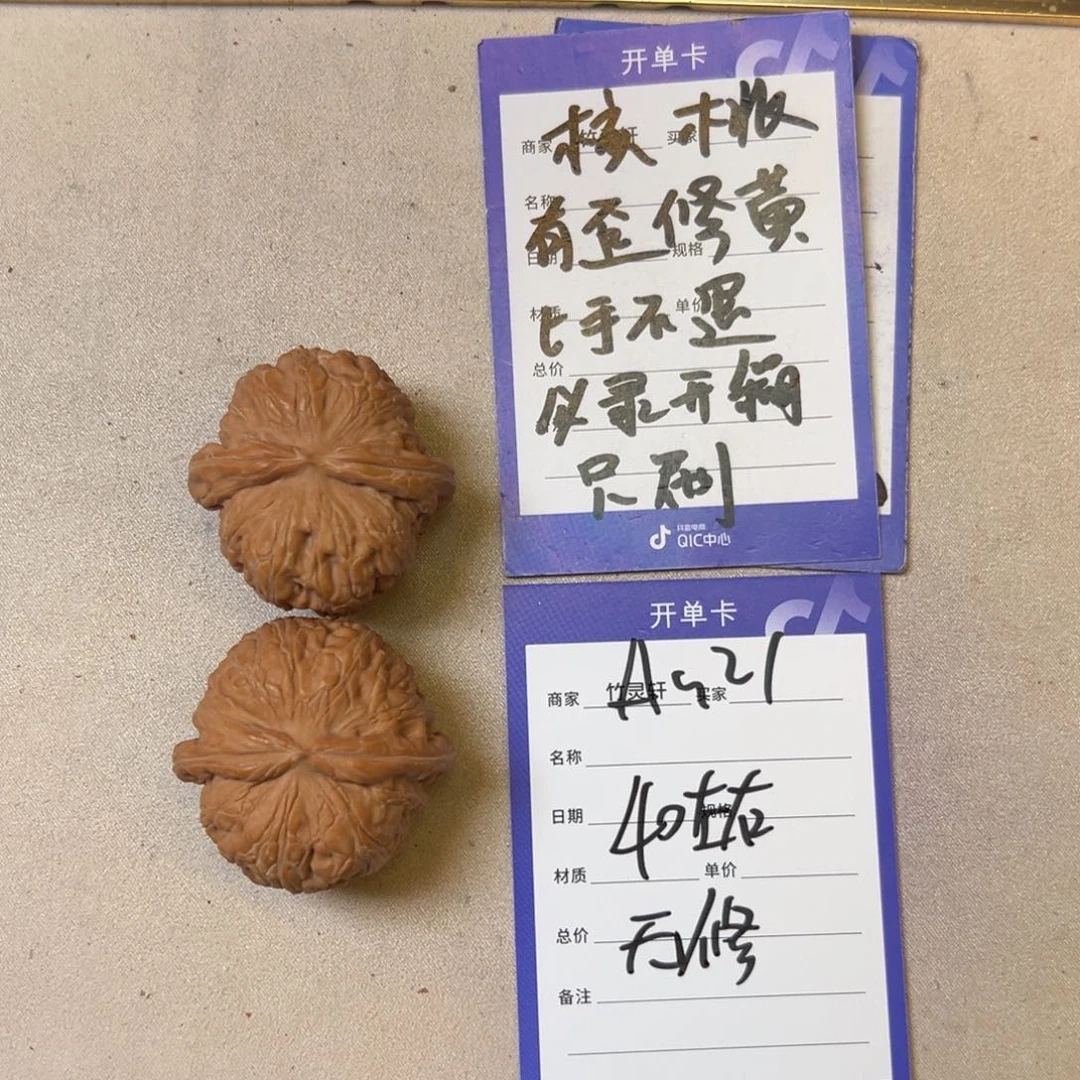 开单卡
核 木报
商家 竹灵轩 买家
名称
有歪修黄
日期 规格
材质 单价
上手不退
总价
必录开箱
只刷
抖音电商
QIC中心
开单卡
Ag21
商家 竹灵轩 买家
名称
日期 规格
40左右
材质 单价
总价
无修
备注